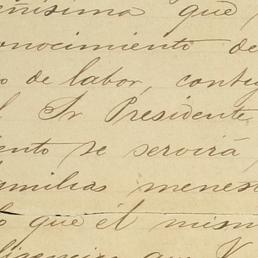 enísima que
onocimiento de
o de labor, conti
l Sr Presidente
iento se servirá
amilias menes
o que él mism